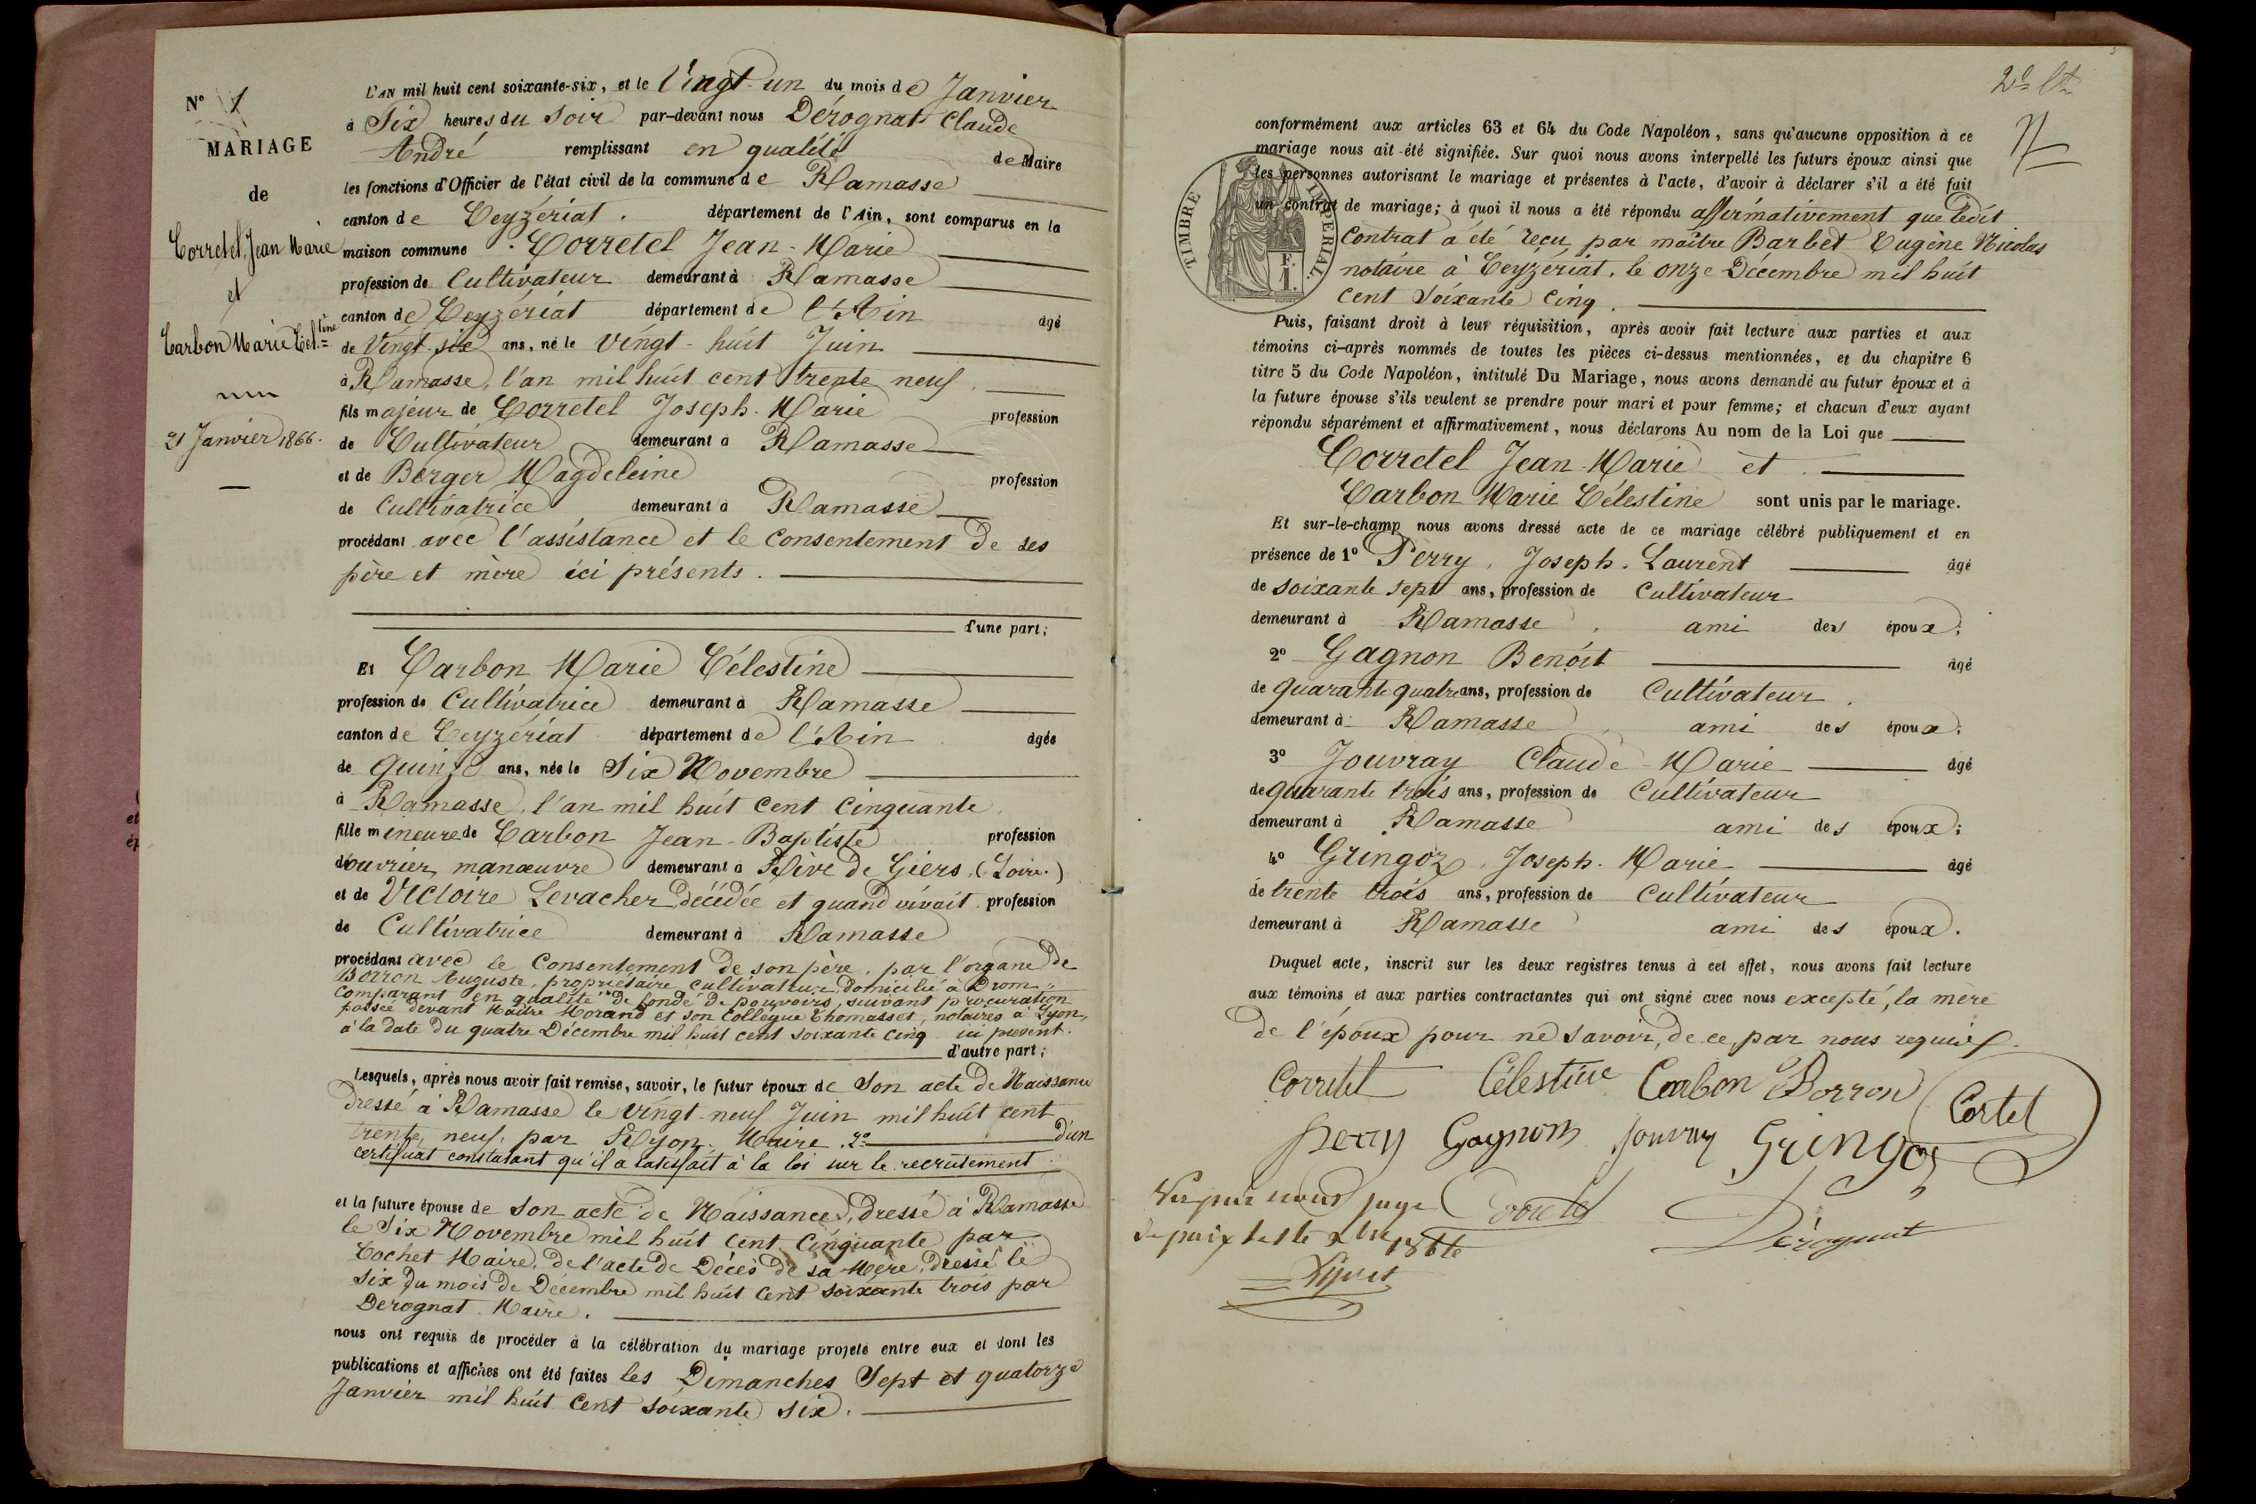 N° 1
MARIAGE
de
Corretel Jean Marie
et
Carbon Marie Célestine
21 Janvier 1866.
L'AN mil huit cent soixante-six, et le Vingt-un du mois de Janvier
à Six heures du Soir par-devant nous Dérognat Claude
André remplissant en qualité de Maire
les fonctions d'Officier de l'état civil de la commune de Ramasse
canton de Ceyzériat. département de l'Ain, sont comparus en la
maison commune Corretel Jean-Marie
profession de Cultivateur demeurant à Ramasse
canton de Ceyzériat département de l'Ain âgé
de Vingt-six ans, né le Vingt-huit Juin
à Ramasse, l'an mil huit cent trente neuf.
fils majeur de Corretel Joseph-Marie profession
de Cultivateur demeurant à Ramasse
et de Berger Magdeleine profession
de Cultivatrice demeurant à Ramasse
procédant avec l'assistance et le consentement de ses
père et mère ici présents.
d'une part;
Et Carbon Marie Célestine
profession de Cultivatrice demeurant à Ramasse
canton de Ceyzériat département de l'Ain âgée
de quinze ans, née le Six Novembre
à Ramasse, l'an mil huit cent cinquante.
fille mineure de Carbon Jean-Baptiste profession
d'ouvrier manœuvre demeurant à Rive de Giers, (Loire.)
et de Victoire Levacher décédée et quand vivait profession
de Cultivatrice demeurant à Ramasse
procédant avec le Consentement de son père, par l'organe de
Borron Auguste, propriétaire cultivateur domicilié à Drom,
Comparant en qualité de fondé de pouvoirs, suivant procuration
passée devant Maître Morand et son Collègue Thomasset, notaires à Lyon,
à la date du quatre Décembre mil huit cent soixante cinq ici présent.
d'autre part;
Lesquels, après nous avoir fait remise, savoir, le futur époux de Son acte de Naissance
dressé à Ramasse le vingt-neuf Juin mil huit cent
trente neuf, par Ryon. Maire. 2° d'un
certificat constatant qu'il a satisfait à la loi sur le recrutement
et la future épouse de Son acte de Naissance, dressé à Ramasse
le Six Novembre mil huit cent cinquante par
Cochet Maire, de l'acte de Décès de sa Mère, dressé le
six du mois de Décembre mil huit cent soixante trois par
Dérognat Maire.
nous ont requis de procéder à la célébration du mariage projeté entre eux et dont les
publications et affiches ont été faites les Dimanches Sept et quatorze
Janvier mil huit cent soixante six.
conformément aux articles 63 et 64 du Code Napoléon, sans qu'aucune opposition à ce
mariage nous ait été signifiée. Sur quoi nous avons interpellé les futurs époux ainsi que
les personnes autorisant le mariage et présentes à l'acte, d'avoir à déclarer s'il a été fait
un contrat de mariage; à quoi il nous a été répondu affirmativement que ledit
Contrat a été reçu par maître Barbet Eugène Nicolas
notaire à Ceyzériat, le onze Décembre mil huit
cent soixante cinq.
TIMBRE IMPÉRIAL
F. 1.
Puis, faisant droit à leur réquisition, après avoir fait lecture aux parties et aux
témoins ci-après nommés de toutes les pièces ci-dessus mentionnées, et du chapitre 6
titre 5 du Code Napoléon, intitulé Du Mariage, nous avons demandé au futur époux et à
la future épouse s'ils veulent se prendre pour mari et pour femme; et chacun d'eux ayant
répondu séparément et affirmativement, nous déclarons Au nom de la Loi que
Corretel Jean-Marie et
Carbon Marie Célestine sont unis par le mariage.
Et sur-le-champ nous avons dressé acte de ce mariage célébré publiquement et en
présence de 1° Perry, Joseph-Laurent âgé
de soixante sept ans, profession de Cultivateur
demeurant à Ramasse, ami des époux;
2° Gagnon Benoit âgé
de quarante quatre ans, profession de Cultivateur.
demeurant à Ramasse ami des époux;
3° Jouvray Claude-Marie âgé
de quarante trois ans, profession de Cultivateur
demeurant à Ramasse ami des époux;
4° Gringoz, Joseph-Marie âgé
de trente trois ans, profession de Cultivateur
demeurant à Ramasse ami des époux.
Duquel acte, inscrit sur les deux registres tenus à cet effet, nous avons fait lecture
aux témoins et aux parties contractantes qui ont signé avec nous excepté, la mère
de l'époux pour ne savoir, de ce par nous requis.
Corretel Célestine Carbon Borron Cortel
Perry Gagnon Jouvray Gringoz
Vu par nous juge Corretel
de paix Dérognat